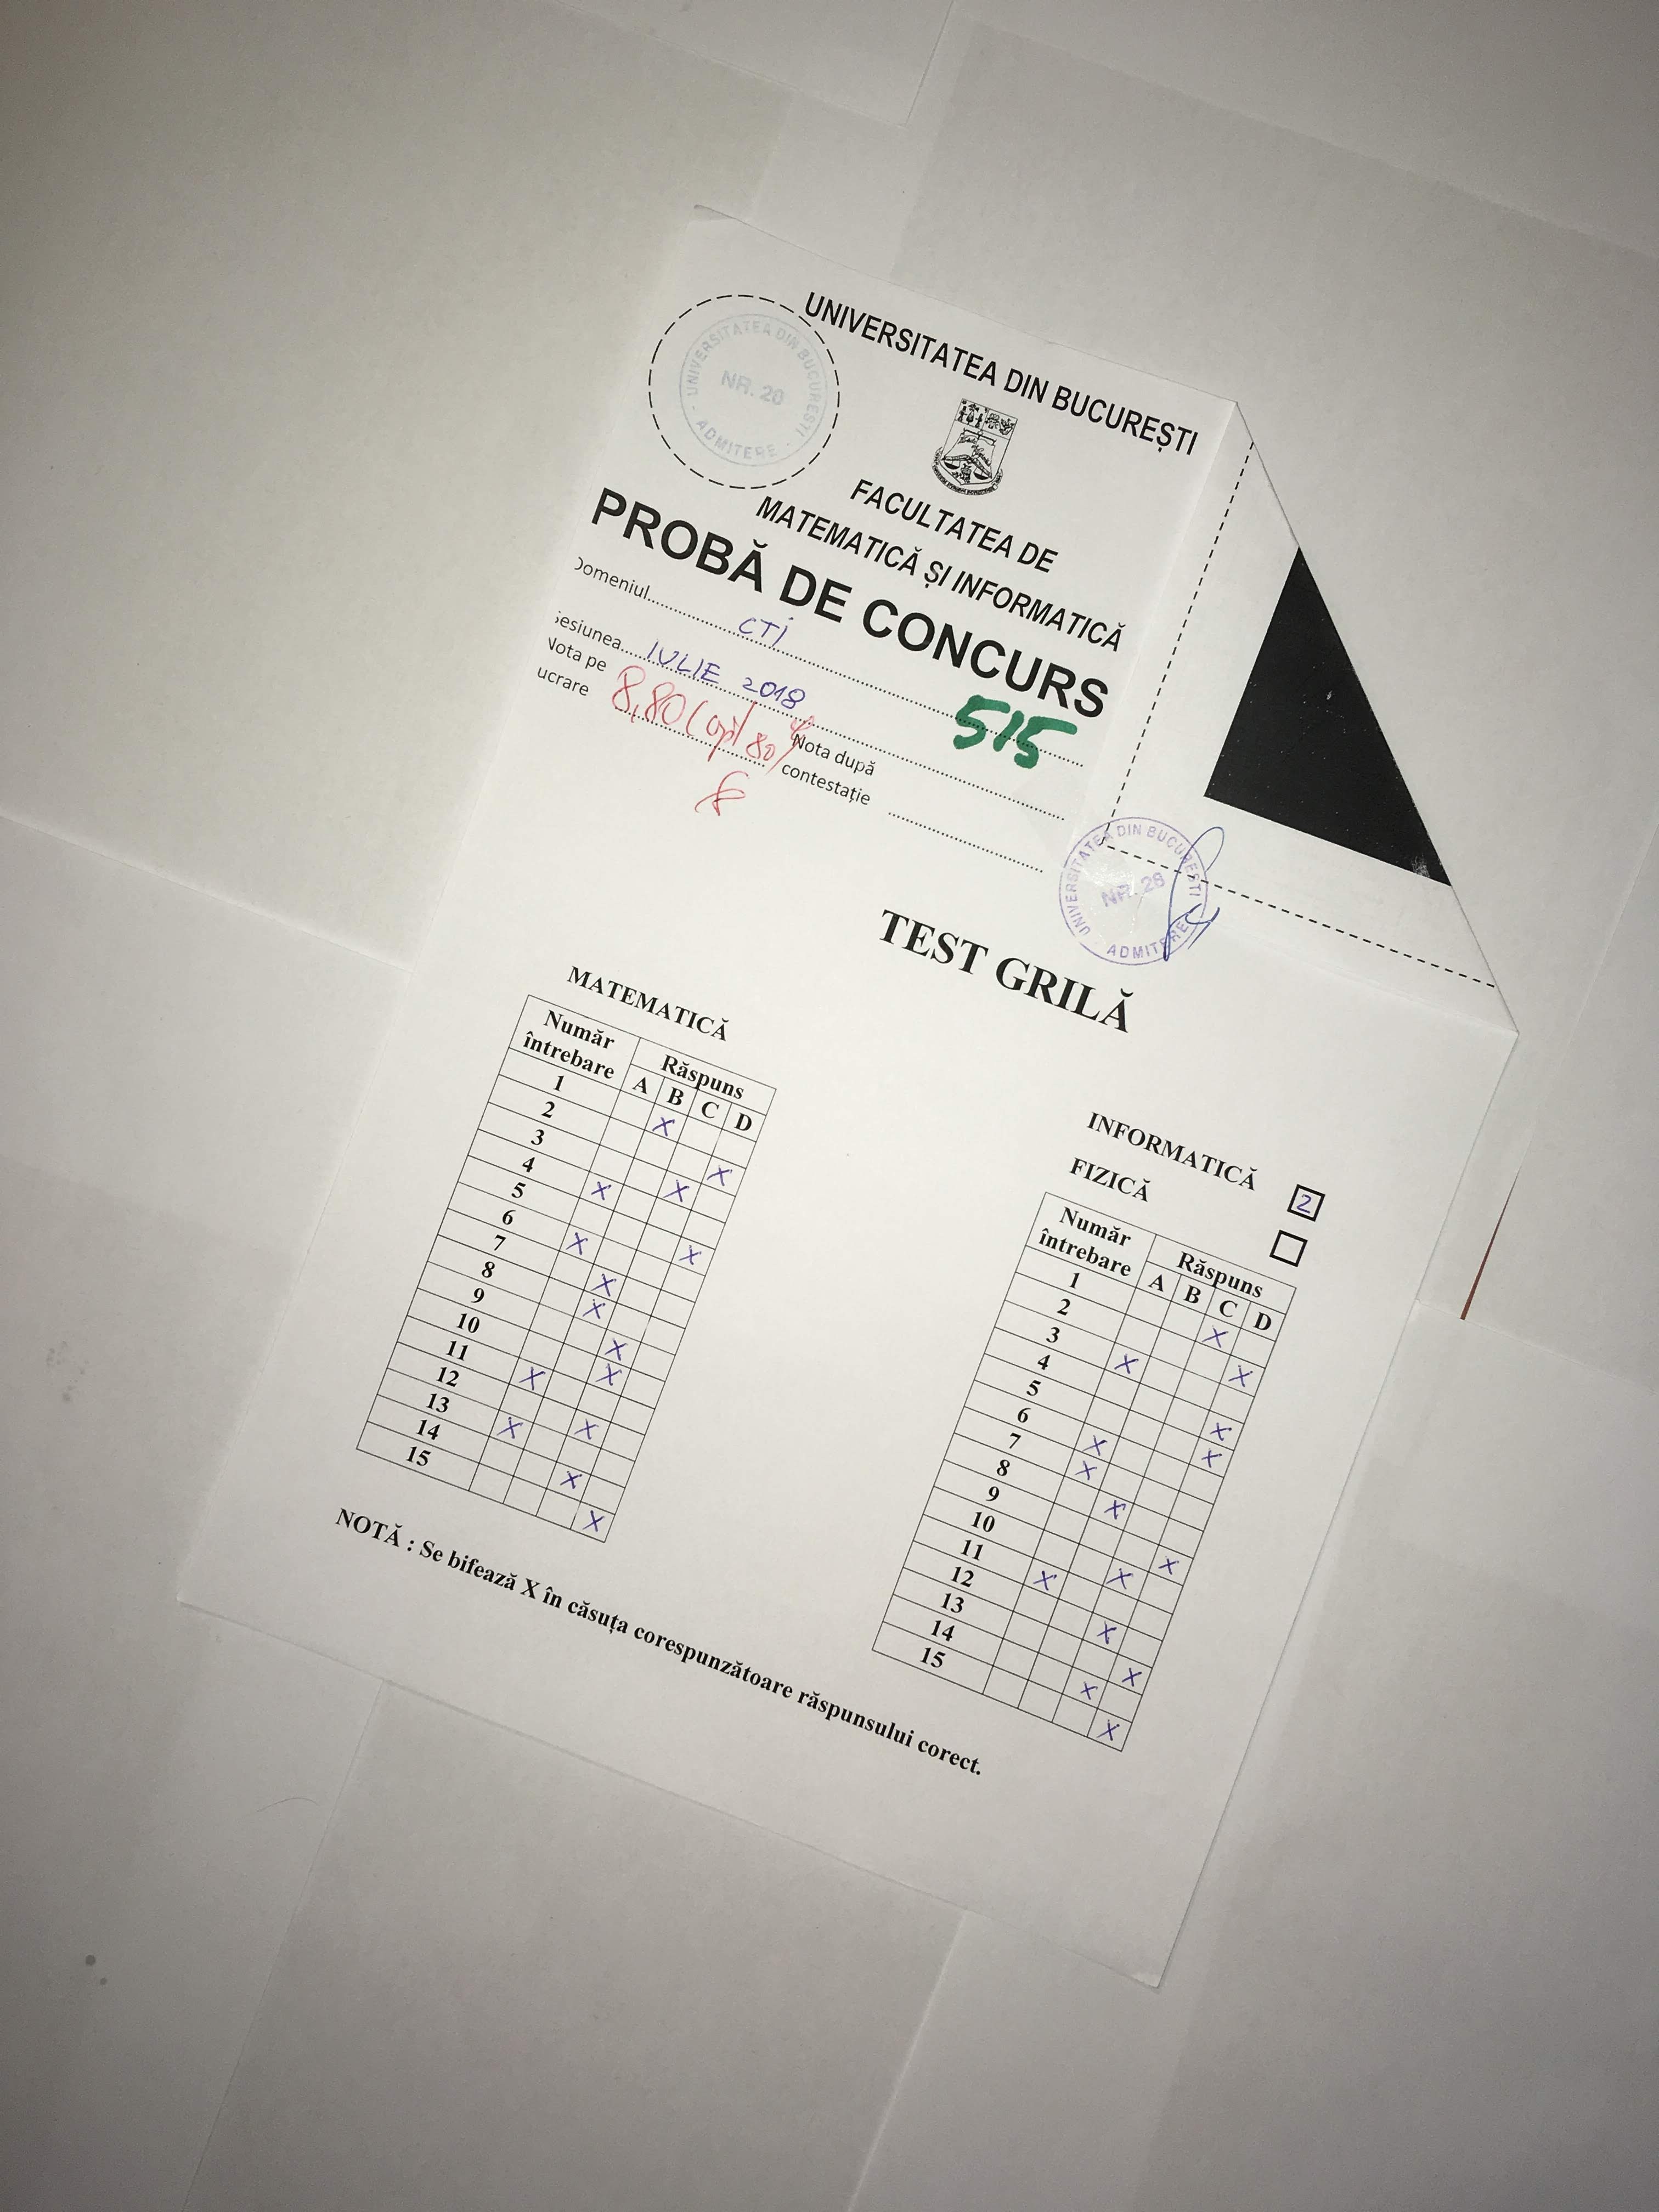 UNIVERSITATEA DIN BUCUREȘTI
UNIVERSITATEA DIN BUCUREȘTI
NR. 20
ADMITERE
FACULTATEA DE
MATEMATICĂ ȘI INFORMATICĂ
PROBĂ DE CONCURS
Domeniul CTI
515
Sesiunea IULIE 2018
Nota pe lucrare 8,80 (opt 80)
Nota după contestație
UNIVERSITATEA DIN BUCUREȘTI
NR. 28
ADMITERE
TEST GRILĂ
MATEMATICĂ
Număr întrebare Răspuns
A B C D
1 X
2 X
3 X
4 X
5 X
6 X
7 X
8 X
9 X
10 X
11 X
12 X
13 X
14 X
15 X
INFORMATICĂ 2
FIZICĂ
Număr întrebare Răspuns
A B C D
1 X
2 X
3 X
4 X
5 X
6 X
7 X
8 X
9 X
10 X
11 X
12 X
13 X
14 X
15 X
NOTĂ : Se bifează X în căsuța corespunzătoare răspunsului corect.